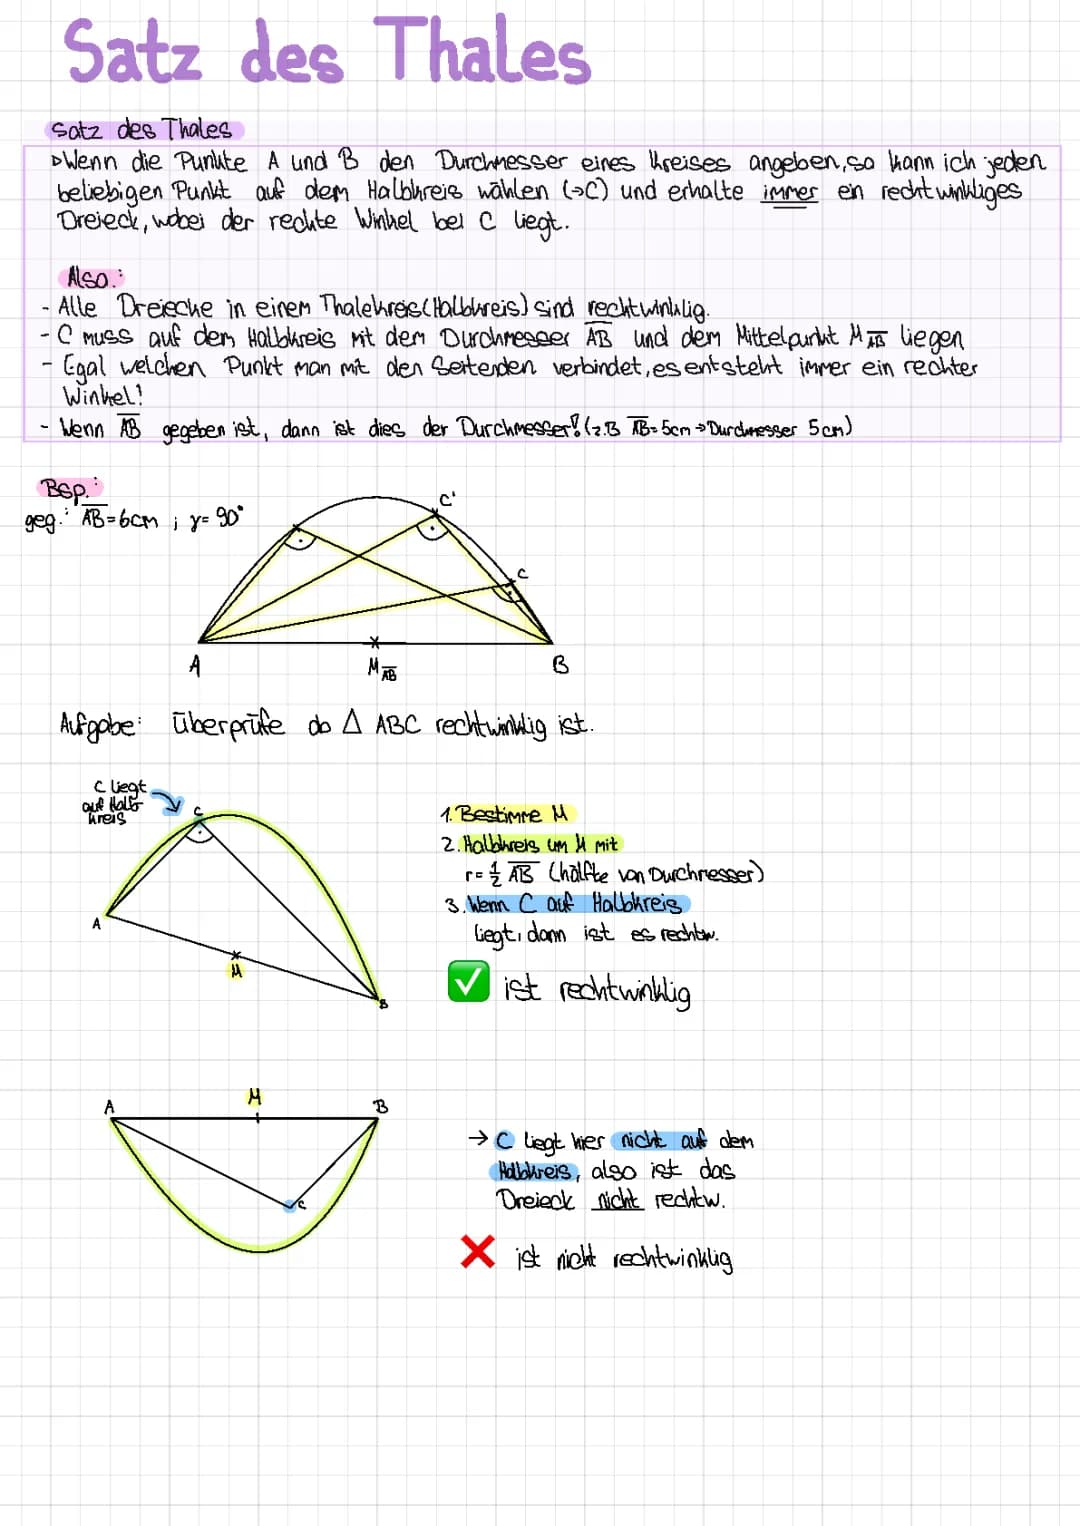 Satz des Thales
Satz des Thales
▹Wenn die Punkte A und B den Durchmesser eines Kreises angeben, so kann ich jeden
beliebigen Punkt auf dem Halbkreis wählen (→C) und erhalte immer ein rechtwinkliges
Dreieck, wobei der rechte Winkel bei C liegt.
Also:
- Alle Dreiecke in einem Thalekreis (Halbkreis) sind rechtwinklig.
- C muss auf dem Halbkreis mit dem Durchmesser A̅B̅ und dem Mittelpunkt M A̅B̅ liegen
- Egal welchen Punkt man mit den Seitenden verbindet, es entsteht immer ein rechter
Winkel!
- Wenn A̅B̅ gegeben ist, dann ist dies der Durchmesser! (z.B A̅B̅=5cm →Durchmesser 5cm)
Bsp.:
geg.: A̅B̅=6cm ; γ= 90°
C'
C
A
M A̅B̅
B
Aufgabe: Überprüfe ob Δ ABC rechtwinklig ist.
C liegt
auf Halb
kreis
C
A
M
B
1. Bestimme M
2. Halbkreis um M mit
r= 1/2 A̅B̅ (hälfte von Durchmesser)
3. Wenn C auf Halbkreis
liegt, dann ist es rechtw.
✅ ist rechtwinklig
A
M
B
C
→ C liegt hier nicht auf dem
Halbkreis, also ist das
Dreieck nicht rechtw.
❌ ist nicht rechtwinklig